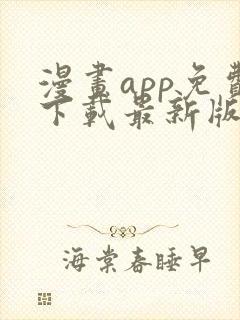 漫畫app免費
下載最新版
海棠春睡早